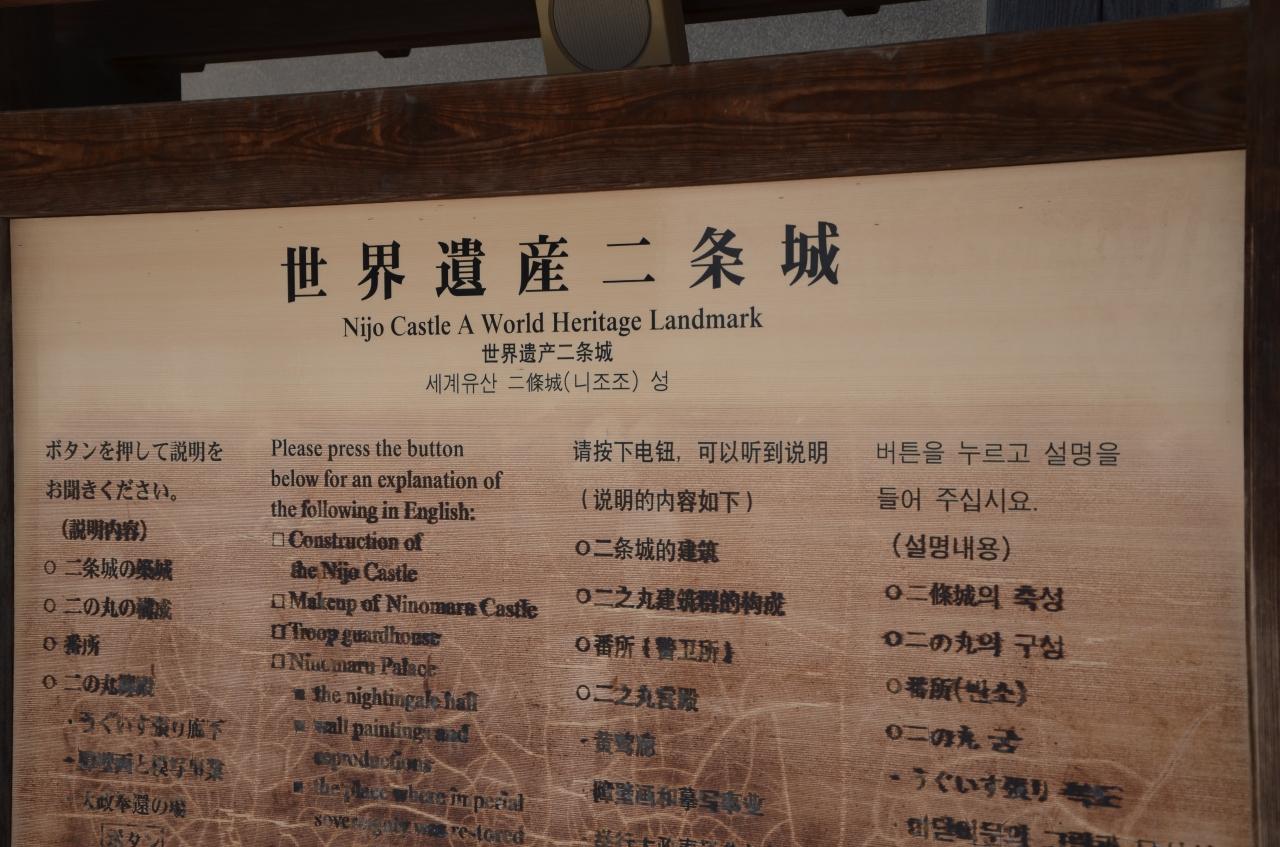 世界遺産二条城
Nijo Castle A World Heritage Landmark
世界遗产二条城
세계유산 二條城(니조조) 성
ボタンを押して説明を
お聞きください。
(説明内容)
○ 二条城の築城
○ 二の丸の構成
○ 番所
○ 二の丸御殿
・うぐいす張り廊下
・障壁画と模写事業
・大政奉還の場
ボタン
Please press the button
below for an explanation of
the following in English:
□ Construction of
the Nijo Castle
□ Makeup of Ninomaru Castle
□ Troop guardhouse
□ Ninomaru Palace
■ the nightingale hall
■ wall paintings and
reproductions
■ the place where imperial
sovereignty was restored
请按下电钮，可以听到说明
(说明的内容如下)
○二条城的建筑
○二之丸建筑群的构成
○番所(警卫所)
○二之丸宫殿
·黄莺廊
障壁画和摹写事业
버튼을 누르고 설명을
들어 주십시요.
(설명내용)
○二條城의 축성
○二の丸의 구성
○番所(반소)
○二の丸 궁
- うぐいす張り 복도